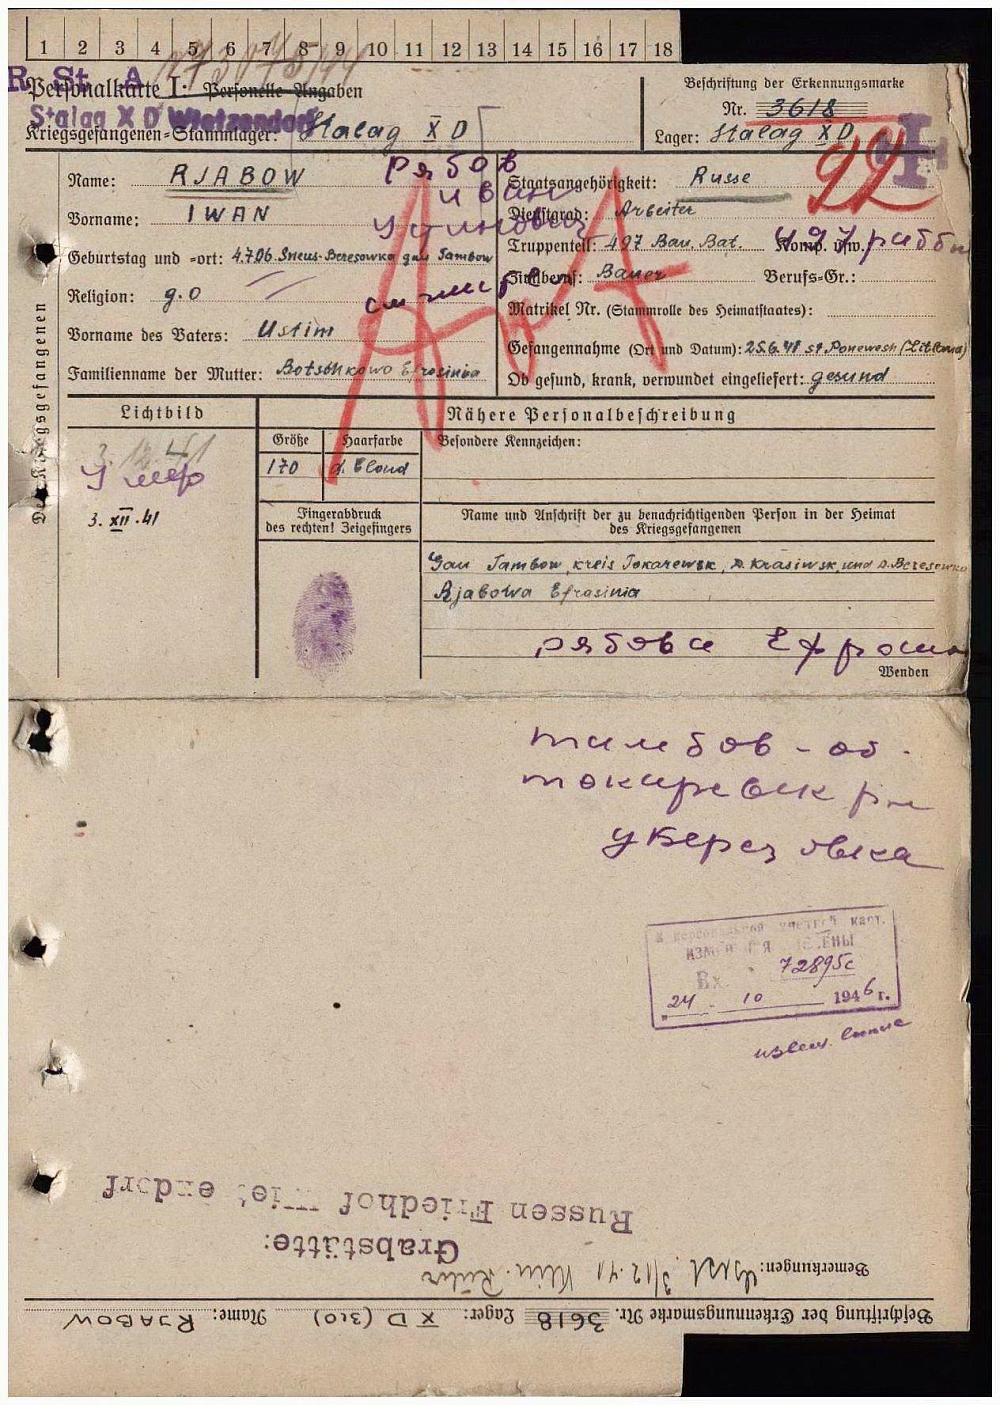 1 2 3 4 5 6 7 8 9 10 11 12 13 14 15 16 17 18
R. St. A
Personalkarte I: Personelle Angaben
Stalag X D Wietzendorf
Kriegsgefangenen-Stammlager: Stalag X D
Beschriftung der Erkennungsmarke
Nr. 3618
Lager: Stalag X D
92
Des Kriegsgefangenen
Name: RJABOW
Рябов
Vorname: IWAN
Иван
Устинович
Geburtstag und -ort: 4.7.06. Beresowka gau Tambow
Religion: g.o
Vorname des Vaters: Ustim
Familienname der Mutter: Botschkowa Efrosinia
Staatsangehörigkeit: Russe
Dienstgrad: Arbeiter
Truppenteil: 497 Bau. Bat. Komp. usw.:
497 рабби
Zivilberuf: Bauer Berufs-Gr.:
Matrikel Nr. (Stammrolle des Heimatstaates):
Gefangennahme (Ort und Datum): 25.6.41 st Ponewesh (Litowa)
Ob gesund, krank, verwundet eingeliefert: gesund
Lichtbild
3.12.41
Умер
3. XII .41
Nähere Personalbeschreibung
Größe Haarfarbe Besondere Kennzeichen:
170 d. blond
Fingerabdruck
des rechten! Zeigefingers
Name und Anschrift der zu benachrichtigenden Person in der Heimat
des Kriegsgefangenen
Gau Tambow, kreis Tokarewsk, D. Krasiwsk, und D. Beresowka
Rjabowa Efrasinia
Рябова Ефросин
Wenden
тамбов - об.
токаревск рн
укБерезовка
ВХ. 72895с
24 10 1946 г.
Russen Friedhof Wietzendorf
Grabstätte:
Bemerkungen: 3/12.41
Beschriftung der Erkennungsmarke Nr. 3618 Lager: X D (310) Name: RJABOW